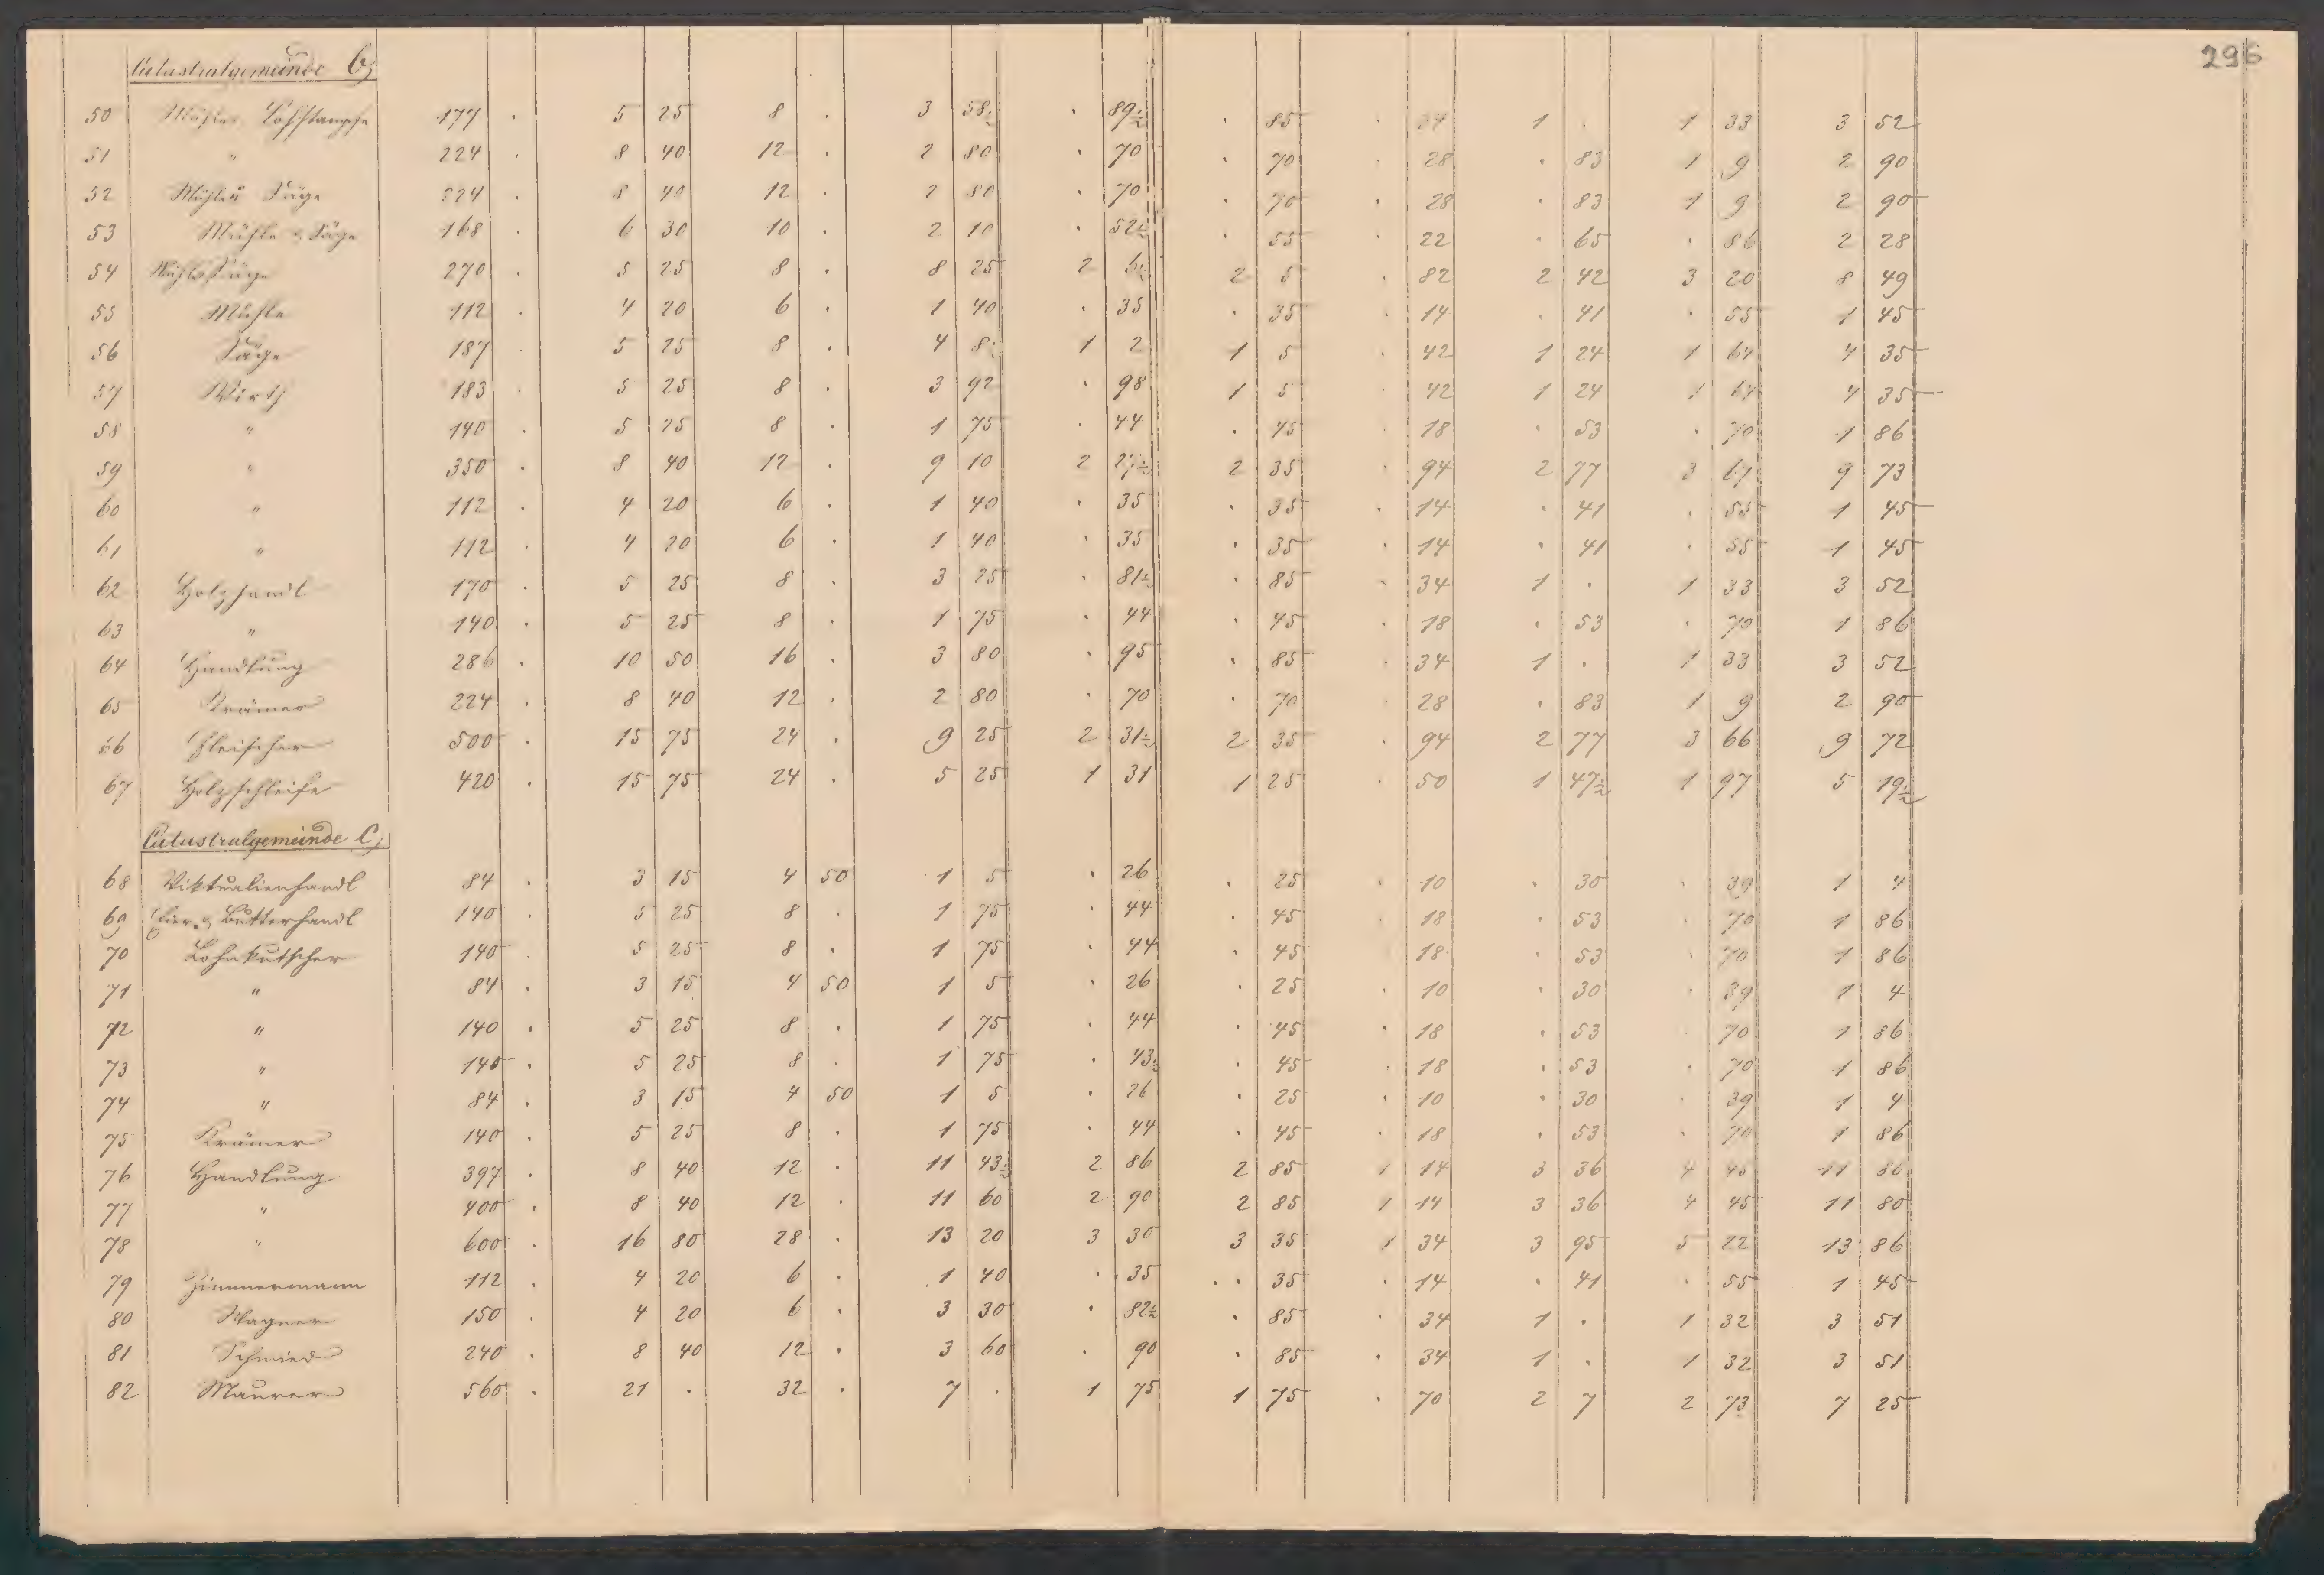 296
Catastralgemeinde b,
50 Mühle, Lohstampfe 177 . 5 25 8 . 3 58½ . 89½ . 85 . 34 1 . 1 33 3 52
51 " 224 . 8 40 12 . 2 80 . 70 . 70 . 28 . 83 1 9 2 90
52 Mühle u Säge 224 . 8 40 12 . 2 80 . 70 . 70 . 28 . 83 1 9 2 90
53 Mühle u Säge 168 . 6 30 10 . 2 10 . 52½ . 55 . 22 . 65 . 86 2 28
54 Mühle u Säge 270 . 5 25 8 . 8 25 2 6½ 2 5 . 82 2 42 3 20 8 49
55 Mühle 112 . 4 20 6 . 1 40 . 35 . 35 . 14 . 41 . 55 1 45
56 Säge 187 . 5 25 8 . 4 8½ 1 2 1 5 . 42 1 24 1 64 4 35
57 Wirth 183 . 5 25 8 . 3 92 . 98 1 5 . 42 1 24 1 64 4 35
58 " 140 . 5 25 8 . 1 75 . 44 . 45 . 18 . 53 . 70 1 86
59 " 350 . 8 40 12 . 9 10 2 27½ 2 35 . 94 2 77 3 67 9 73
60 " 112 . 4 20 6 . 1 40 . 35 . 35 . 14 . 41 . 55 1 45
61 " 112 . 4 20 6 . 1 40 . 35 . 35 . 14 . 41 . 55 1 45
62 Holzhandl 170 . 5 25 8 . 3 25 . 81½ . 85 . 34 1 . 1 33 3 52
63 " 140 . 5 25 8 . 1 75 . 44 . 45 . 18 . 53 . 70 1 86
64 Handlung 286 . 10 50 16 . 3 80 . 95 . 85 . 34 1 . 1 33 3 52
65 Krämer 224 . 8 40 12 . 2 80 . 70 . 70 . 28 . 83 1 9 2 90
66 Fleischer 500 . 15 75 24 . 9 25 2 31½ 2 35 . 94 2 77 3 66 9 72
67 Holzschleife 420 . 15 75 24 . 5 25 1 31 1 25 . 50 1 47½ 1 97 5 19½
Catastralgemeinde C,
68 Viktualienhandl 84 . 3 15 4 50 1 5 . 26 . 25 . 10 . 30 . 39 1 4
69 Eier- u Butterhandl 140 . 5 25 8 . 1 75 . 44 . 45 . 18 . 53 . 70 1 86
70 Lohnkutscher 140 . 5 25 8 . 1 75 . 44 . 45 . 18 . 53 . 70 1 86
71 " 84 . 3 15 4 50 1 5 . 26 . 25 . 10 . 30 . 39 1 4
72 " 140 . 5 25 8 . 1 75 . 44 . 45 . 18 . 53 . 70 1 86
73 " 140 . 5 25 8 . 1 75 . 43½ . 45 . 18 . 53 . 70 1 86
74 " 84 . 3 15 4 50 1 5 . 26 . 25 . 10 . 30 . 39 1 4
75 Krämer 140 . 5 25 8 . 1 75 . 44 . 45 . 18 . 53 . 70 1 86
76 Handlung 397 . 8 40 12 . 11 43½ 2 86 2 85 1 14 3 36 4 45 11 80
77 " 400 . 8 40 12 . 11 60 2 90 2 85 1 14 3 36 4 45 11 80
78 " 600 . 16 80 28 . 13 20 3 30 3 35 1 34 3 95 5 22 13 86
79 Zimmermann 112 . 4 20 6 . 1 40 . 35 . 35 . 14 . 41 . 55 1 45
80 Wagner 150 . 4 20 6 . 3 30 . 82½ . 85 . 34 1 . 1 32 3 51
81 Schmied 240 . 8 40 12 . 3 60 . 90 . 85 . 34 1 . 1 32 3 51
82 Maurer 560 . 21 . 32 . 7 . 1 75 1 75 . 70 2 7 2 73 7 25